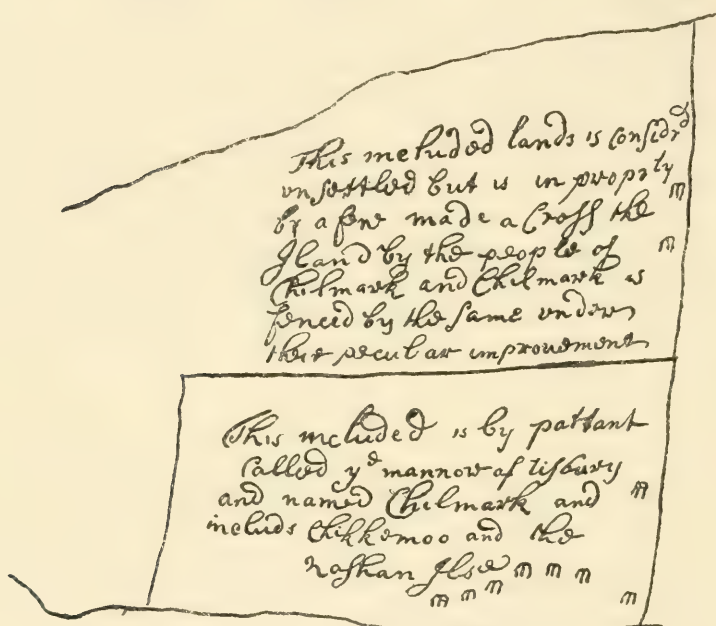 This included lands is considrd
vnsettled but is in proprty
by a fenc made a Cross the
Iland by the people of
Chilmark and Chilmark is
fenced by the same vnder
their peculiar improuement
This included is by pattant
Called ye mannor of tisbury
and named Chilmark and
includs Chikkemoo and the
Nashan Ilse